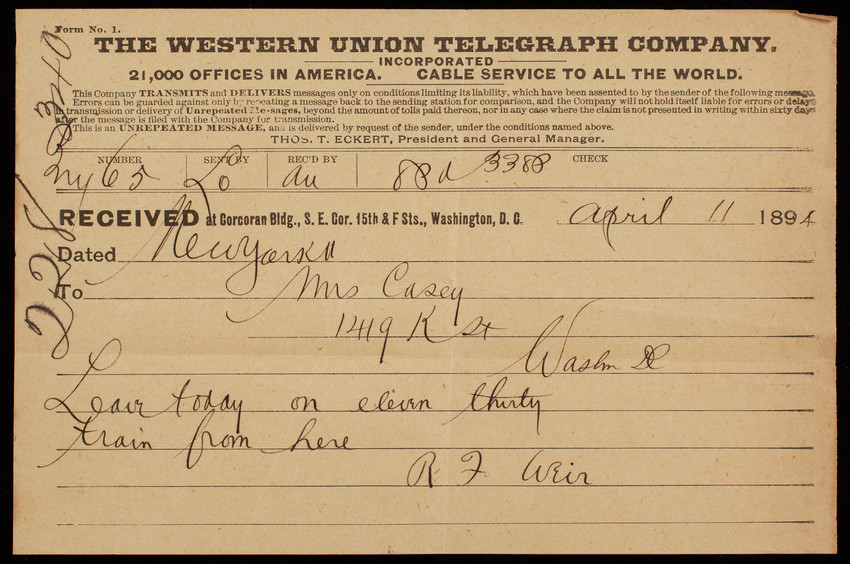 Form No. 1.
THE WESTERN UNION TELEGRAPH COMPANY.
INCORPORATED
21,000 OFFICES IN AMERICA. CABLE SERVICE TO ALL THE WORLD.
This Company TRANSMITS and DELIVERS messages only on conditions limiting its liability, which have been assented to by the sender of the following message.
Errors can be guarded against only by repeating a message back to the sending station for comparison, and the Company will not hold itself liable for errors or delays
in transmission or delivery of Unrepeated Messages, beyond the amount of tolls paid thereon, nor in any case where the claim is not presented in writing within sixty days
after the message is filed with the Company for transmission.
This is an UNREPEATED MESSAGE, and is delivered by request of the sender, under the conditions named above.
THOS. T. ECKERT, President and General Manager.
NUMBER SENT BY REC'D BY CHECK
ny 65 Lo au 88d 3388
RECEIVED at Corcoran Bldg., S. E. Cor. 15th & F Sts., Washington, D. C. april 11 1894
Dated New York 11
To Mrs Casey
1419 K St
Washn DC
Leave today on eleven thirty
train from here
R F Weir